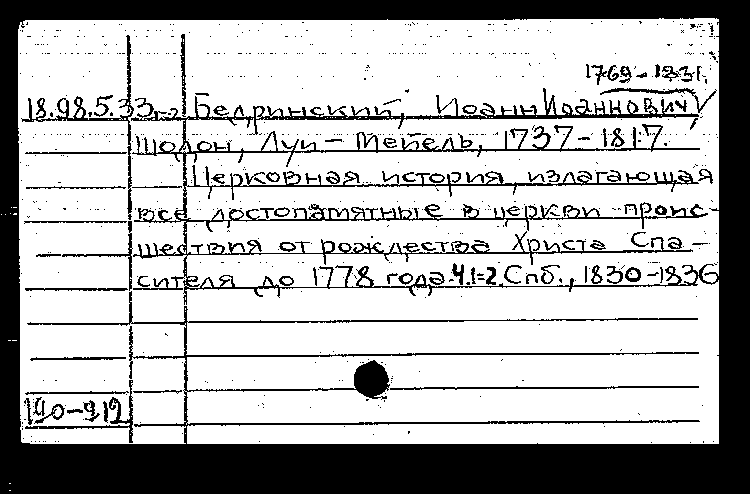 1769-1831.
18.98.5.33 1-2 Бедринский, Иоанн Иоаннович
Шодон, Луи-Мейель, 1737-1817.
Церковная история, излагающая
все достопамятные в церкви проис-
шествия от рождества Христа Спа-
сителя до 1778 года.Ч.1-2. Спб., 1830-1836
190-912